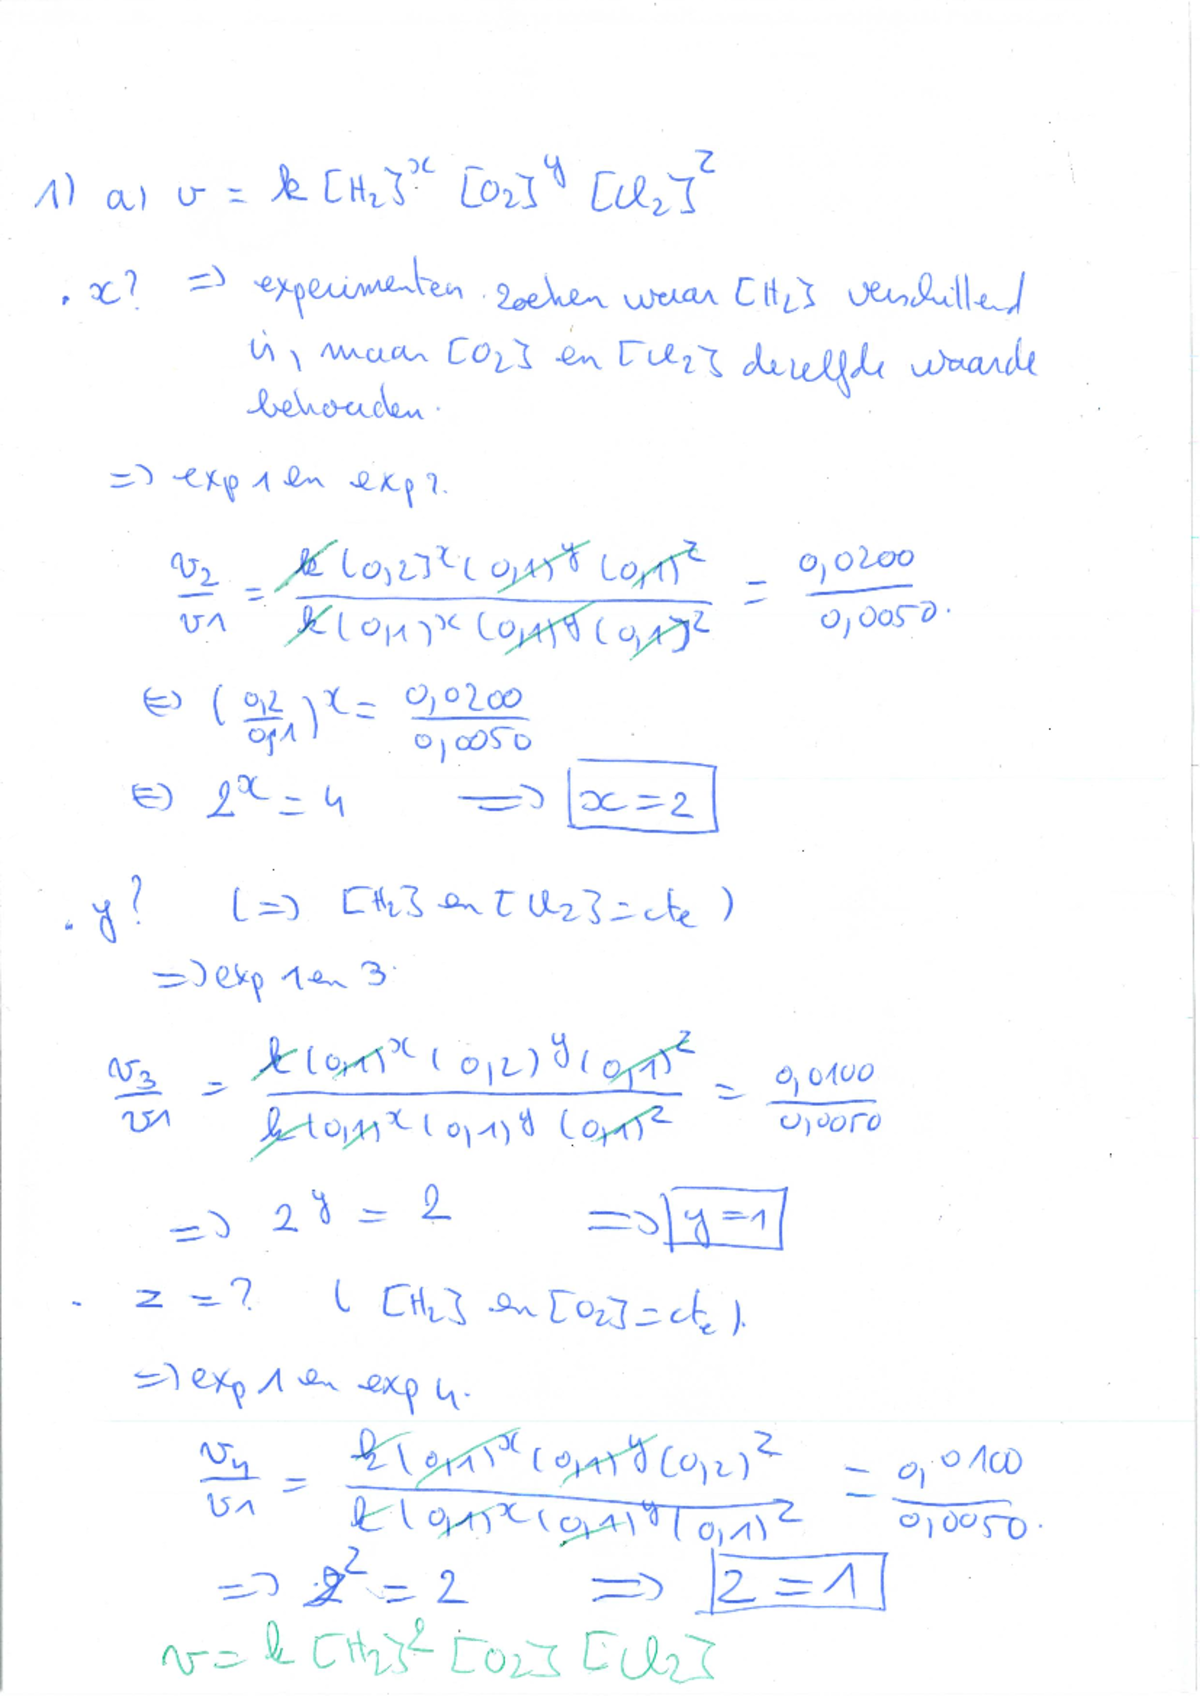 1) a) v = k [H₂]ˣ [O₂]ʸ [Cl₂]ᶻ
. x? => experimenten zoeken waar [H₂] verschillend
is, maar [O₂] en [Cl₂] dezelfde waarde
behouden.
=> exp 1 en exp 2.
v2/v1 = k(0,2)ˣ(0,1)ʸ(0,1)ᶻ / k(0,1)ˣ(0,1)ʸ(0,1)ᶻ = 0,0200/0,0050.
<=> (0,2/0,1)ˣ = 0,0200/0,0050
<=> 2ˣ = 4 => x = 2
. y? (=> [H₂] en [Cl₂] = cte)
=> exp 1 en 3.
v3/v1 = k(0,1)ˣ(0,2)ʸ(0,1)ᶻ / k(0,1)ˣ(0,1)ʸ(0,1)ᶻ = 0,0100/0,0050
=> 2ʸ = 2 => y = 1
. z = ? ([H₂] en [O₂] = cte).
=> exp 1 en exp 4.
v4/v1 = k(0,1)ˣ(0,1)ʸ(0,2)ᶻ / k(0,1)ˣ(0,1)ʸ(0,1)ᶻ = 0,0100/0,0050.
=> 2ᶻ = 2 => z = 1
v = k [H₂]² [O₂] [Cl₂]